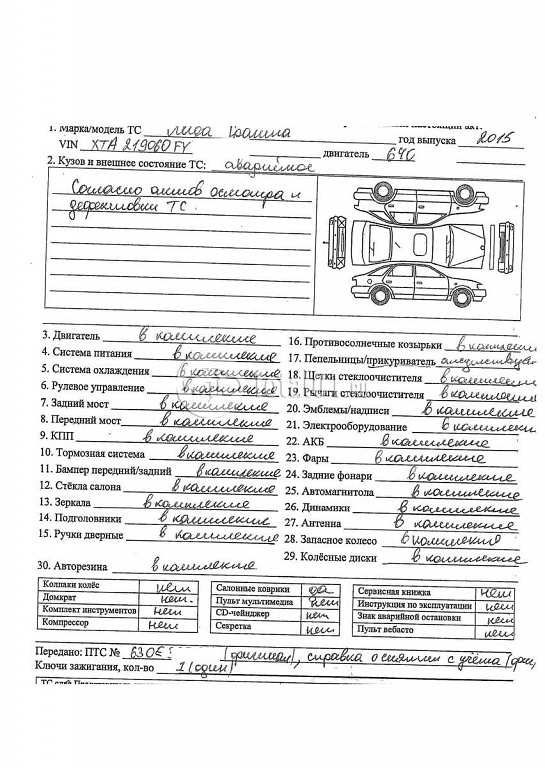 1. Марка/модель ТС Лада Гранта
год выпуска 2015
VIN XTA 219060FY
двигатель
2. Кузов и внешнее состояние ТС: аварийное
Согласно актов осмотра и
дефектовки ТС.
3. Двигатель в комплекте
4. Система питания в комплекте
5. Система охлаждения в комплекте
6. Рулевое управление в комплекте
7. Задний мост в комплекте
8. Передний мост в комплекте
9. КПП в комплекте
10. Тормозная система в комплекте
11. Бампер передний/задний в комплекте
12. Стёкла салона в комплекте
13. Зеркала в комплекте
14. Подголовники в комплекте
15. Ручки дверные в комплекте
16. Противосолнечные козырьки в комплекте
17. Пепельницы/прикуриватель
18. Щетки стеклоочистителя в комплекте
19. Рычаги стеклоочистителя в комплекте
20. Эмблемы/надписи в комплекте
21. Электрооборудование в комплекте
22. АКБ в комплекте
23. Фары в комплекте
24. Задние фонари в комплекте
25. Автомагнитола в комплекте
26. Динамики в комплекте
27. Антенна в комплекте
28. Запасное колесо в комплекте
29. Колёсные диски в комплекте
30. Авторезина в комплекте
Колпаки колёс нет
Домкрат нет.
Комплект инструментов нет
Компрессор нет
Салонные коврики да
Пульт мультимедиа нет
CD-чейнджер нет
Секретка нет
Сервисная книжка нет
Инструкция по эксплуатации нет
Знак аварийной остановки нет
Пульт вебасто нет
Передано: ПТС № справка о снятии с учёта
Ключи зажигания, кол-во 1 (один)